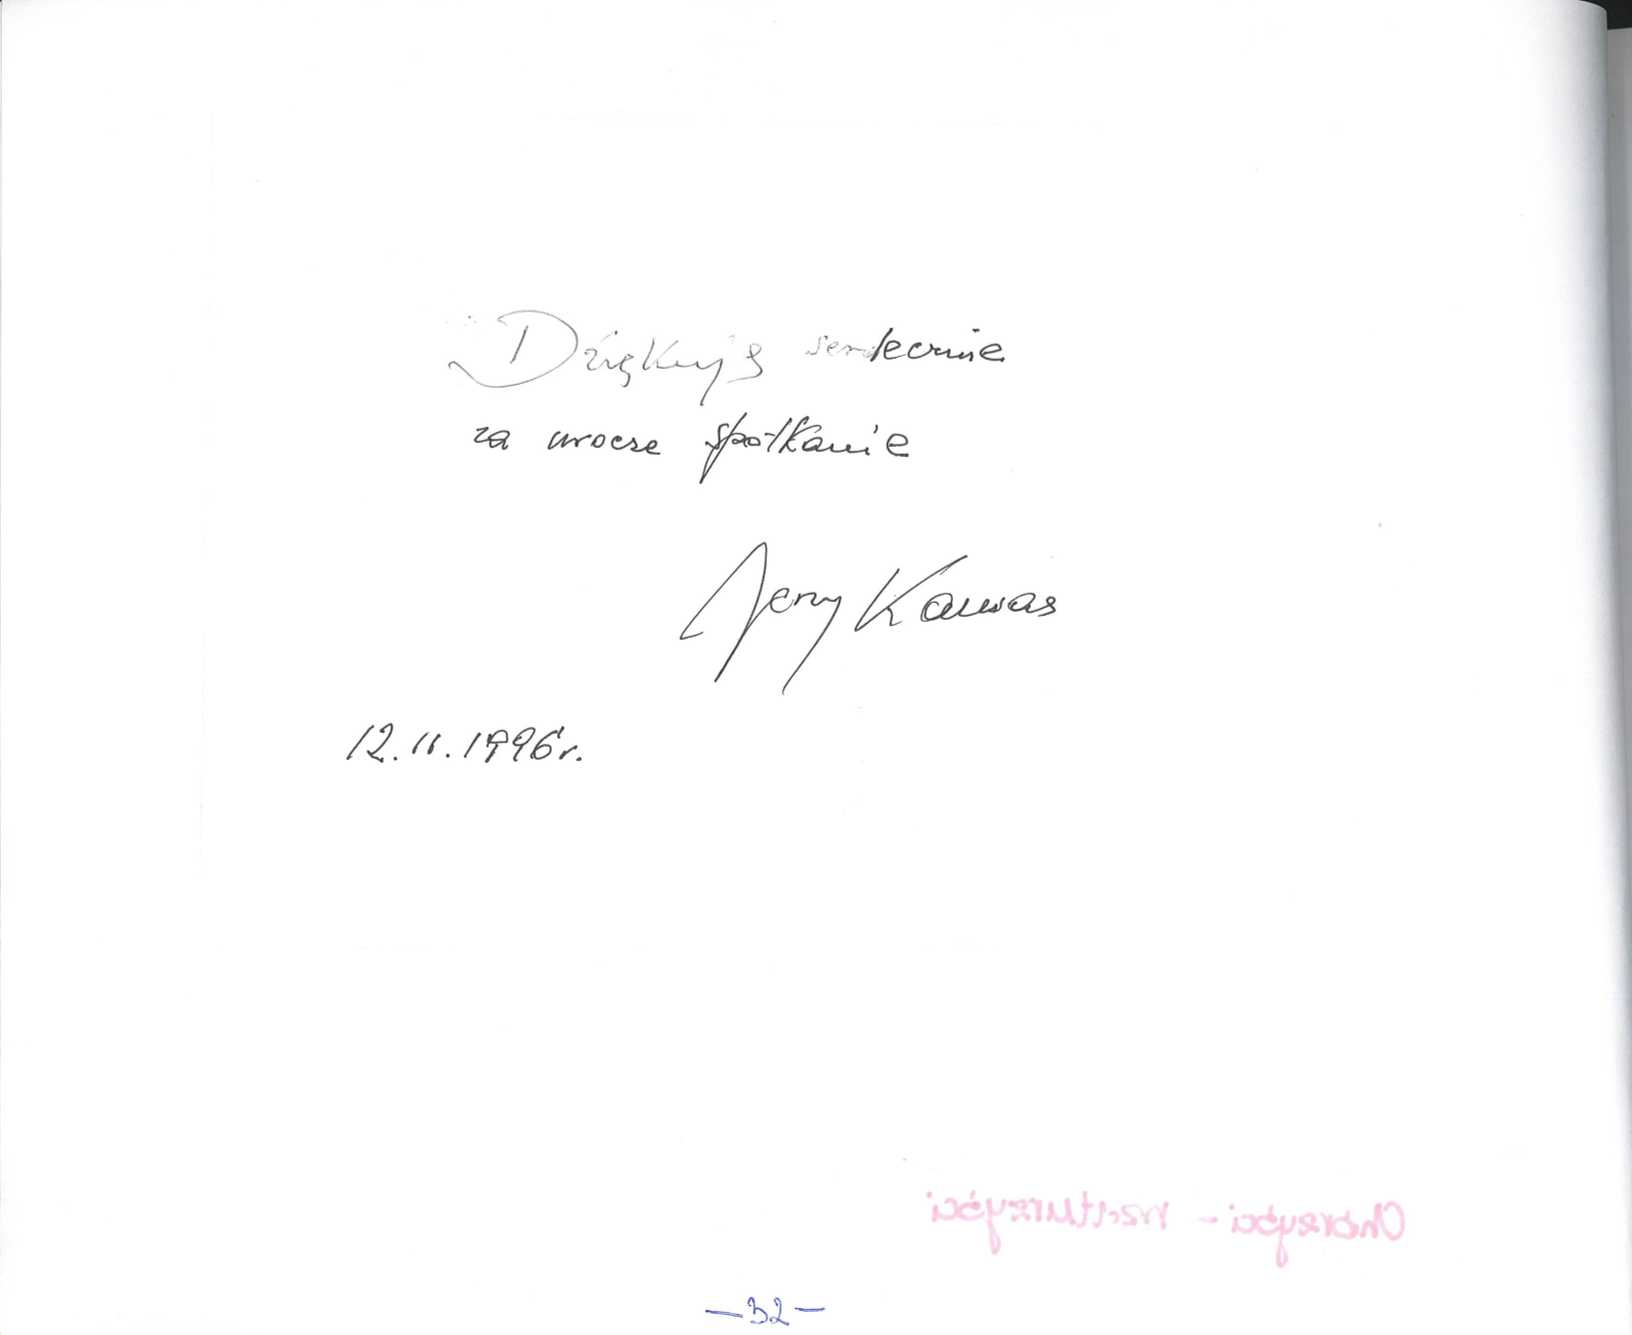 Dziękuję serdecznie
za urocze spotkanie
Jerzy Kawas
12.11.1996r.
-32-